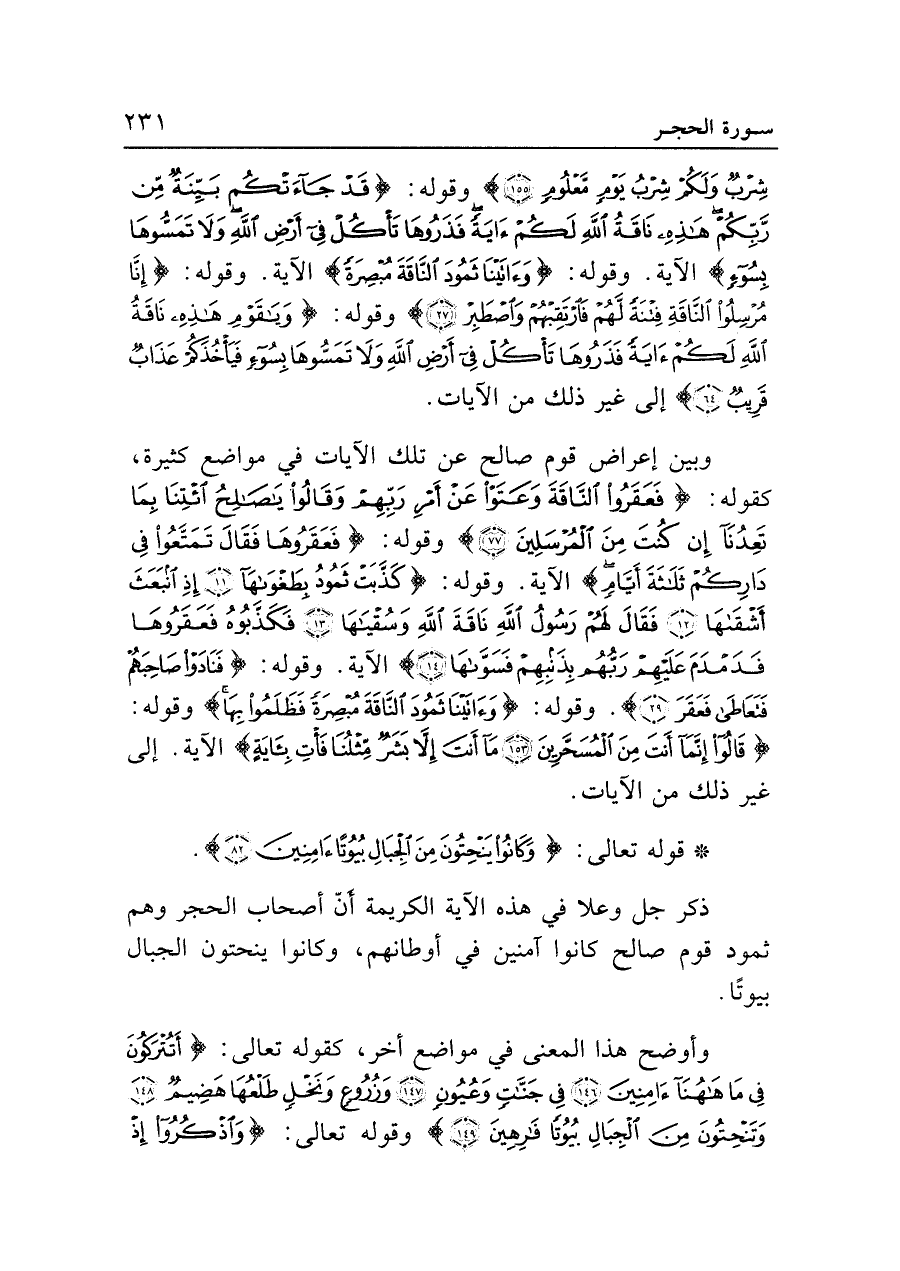 سورة الحجر ٢٣١
شِرْبٌ وَلَكُمْ شِرْبُ يَوْمٍ مَّعْلُومٍ ﴿١٥٥﴾﴾ وقوله: ﴿قَدْ جَآءَتْكُم بَيِّنَةٌ مِّن
رَّبِّكُمْۖ هَٰذِهِۦ نَاقَةُ ٱللَّهِ لَكُمْ ءَايَةًۖ فَذَرُوهَا تَأْكُلْ فِىٓ أَرْضِ ٱللَّهِۖ وَلَا تَمَسُّوهَا
بِسُوٓءٍ﴾ الآية. وقوله: ﴿وَءَاتَيْنَا ثَمُودَ ٱلنَّاقَةَ مُبْصِرَةً﴾ الآية. وقوله: ﴿إِنَّا
مُرْسِلُوا۟ ٱلنَّاقَةِ فِتْنَةً لَّهُمْ فَٱرْتَقِبْهُمْ وَٱصْطَبِرْ ﴿٢٧﴾﴾ وقوله: ﴿وَيَٰقَوْمِ هَٰذِهِۦ نَاقَةُ
ٱللَّهِ لَكُمْ ءَايَةً فَذَرُوهَا تَأْكُلْ فِىٓ أَرْضِ ٱللَّهِ وَلَا تَمَسُّوهَا بِسُوٓءٍ فَيَأْخُذَكُمْ عَذَابٌ
قَرِيبٌ ﴿٦٤﴾﴾ إلى غير ذلك من الآيات.
وبين إعراض قوم صالح عن تلك الآيات في مواضع كثيرة،
كقوله: ﴿فَعَقَرُوا۟ ٱلنَّاقَةَ وَعَتَوْا۟ عَنْ أَمْرِ رَبِّهِمْ وَقَالُوا۟ يَٰصَٰلِحُ ٱئْتِنَا بِمَا
تَعِدُنَآ إِن كُنتَ مِنَ ٱلْمُرْسَلِينَ ﴿٧٧﴾﴾ وقوله: ﴿فَعَقَرُوهَا فَقَالَ تَمَتَّعُوا۟ فِى
دَارِكُمْ ثَلَٰثَةَ أَيَّامٍۖ﴾ الآية. وقوله: ﴿كَذَّبَتْ ثَمُودُ بِطَغْوَىٰهَآ ﴿١١﴾ إِذِ ٱنۢبَعَثَ
أَشْقَىٰهَا ﴿١٢﴾ فَقَالَ لَهُمْ رَسُولُ ٱللَّهِ نَاقَةَ ٱللَّهِ وَسُقْيَٰهَا ﴿١٣﴾ فَكَذَّبُوهُ فَعَقَرُوهَا
فَدَمْدَمَ عَلَيْهِمْ رَبُّهُم بِذَنۢبِهِمْ فَسَوَّىٰهَا ﴿١٤﴾﴾ الآية. وقوله: ﴿فَنَادَوْا۟ صَاحِبَهُمْ
فَتَعَاطَىٰ فَعَقَرَ ﴿٢٩﴾﴾. وقوله: ﴿وَءَاتَيْنَا ثَمُودَ ٱلنَّاقَةَ مُبْصِرَةً فَظَلَمُوا۟ بِهَاۚ﴾ وقوله:
﴿قَالُوٓا۟ إِنَّمَآ أَنتَ مِنَ ٱلْمُسَحَّرِينَ ﴿١٥٣﴾ مَآ أَنتَ إِلَّا بَشَرٌ مِّثْلُنَا فَأْتِ بِـَٔايَةٍ﴾ الآية. إلى
غير ذلك من الآيات.
* قوله تعالى: ﴿وَكَانُوا۟ يَنْحِتُونَ مِنَ ٱلْجِبَالِ بُيُوتًا ءَامِنِينَ ﴿٨٢﴾﴾.
ذكر جل وعلا في هذه الآية الكريمة أنّ أصحاب الحجر وهم
ثمود قوم صالح كانوا آمنين في أوطانهم، وكانوا ينحتون الجبال
بيوتًا.
وأوضح هذا المعنى في مواضع أخر، كقوله تعالى: ﴿أَتُتْرَكُونَ
فِى مَا هَٰهُنَآ ءَامِنِينَ ﴿١٤٦﴾ فِى جَنَّٰتٍ وَعُيُونٍ ﴿١٤٧﴾ وَزُرُوعٍ وَنَخْلٍ طَلْعُهَا هَضِيمٌ ﴿١٤٨﴾
وَتَنْحِتُونَ مِنَ ٱلْجِبَالِ بُيُوتًا فَٰرِهِينَ ﴿١٤٩﴾﴾ وقوله تعالى: ﴿وَٱذْكُرُوٓا۟ إِذْ